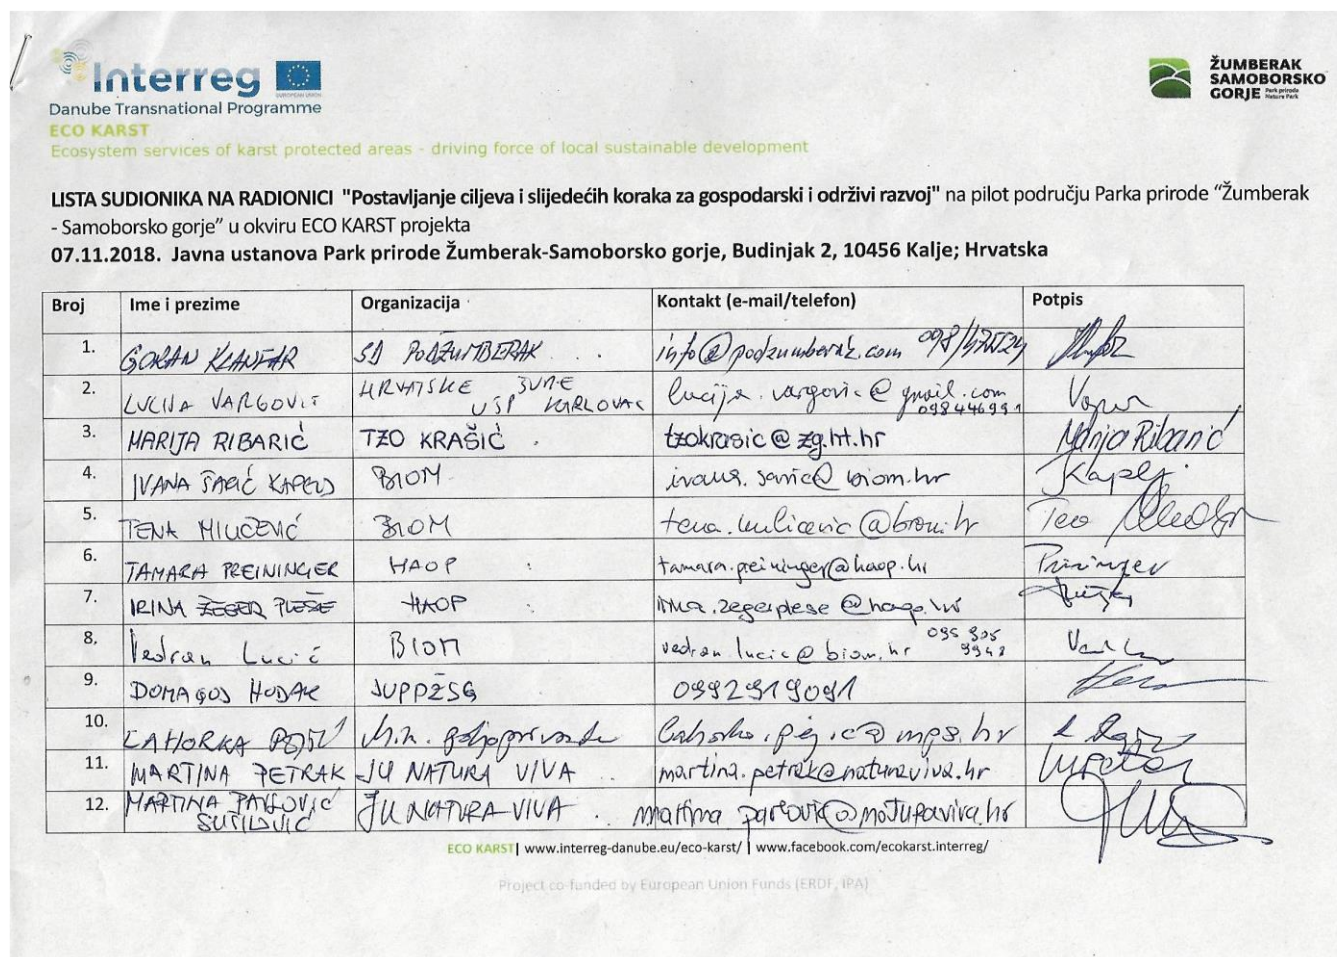 Interreg
EUROPEAN UNION
Danube Transnational Programme
ECO KARST
Ecosystem services of karst protected areas - driving force of local sustainable development
ŽUMBERAK
SAMOBORSKO
GORJE Park prirode Nature Park
LISTA SUDIONIKA NA RADIONICI "Postavljanje ciljeva i slijedećih koraka za gospodarski i održivi razvoj" na pilot području Parka prirode “Žumberak
- Samoborsko gorje” u okviru ECO KARST projekta
07.11.2018. Javna ustanova Park prirode Žumberak-Samoborsko gorje, Budinjak 2, 10456 Kalje; Hrvatska
Broj Ime i prezime Organizacija Kontakt (e-mail/telefon) Potpis
1. GORAN KLANFAR SD PODŽUMBERAK info@podzumberak.com
2. LUCIJA VARGOVIĆ HRVATSKE ŠUME UŠP KARLOVAC lucija.vargovic@gmail.com 098446991
3. MARIJA RIBARIĆ TZO KRAŠIĆ tzokrasic@zg.ht.hr Marija Ribarić
4. IVANA ŠARIĆ KAPELJ BIOM ivana.saric@biom.hr Kapelj
5. TENA MILIČEVIĆ BIOM
6. TAMARA PREININGER HAOP tamara.preininger@haop.hr Preininger
7. IRINA ŽEGER PLEŠE HAOP irina.zegerplese@haop.hr
8. Vedran Lucić BIOM vedran.lucic@biom.hr 095 905 9948
9. DOMAGOJ HODAK JUPPŽSG 0992919091
10. CAHORKA
11. MARTINA PETRAK JU NATURA VIVA martina.petrak@naturaviva.hr
12. MARTINA PAVLOVIĆ JU NATURA VIVA
ECO KARST | www.interreg-danube.eu/eco-karst/ | www.facebook.com/ecokarst.interreg/
Project co-funded by European Union Funds (ERDF, IPA)